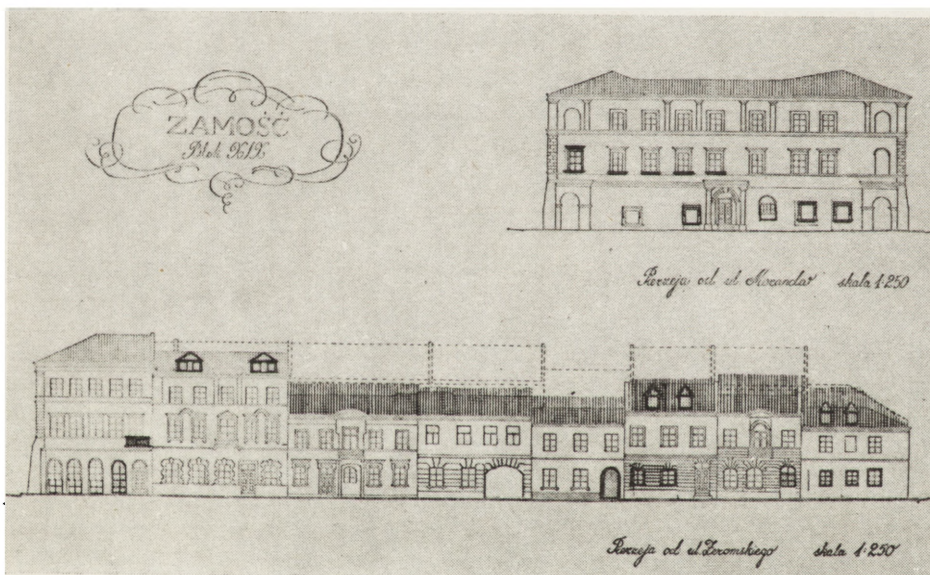 ZAMOŚĆ
Blok XIX
Pierzeja od ul. Moranda skala 1:250
Pierzeja od ul. Żeromskiego skala 1:250